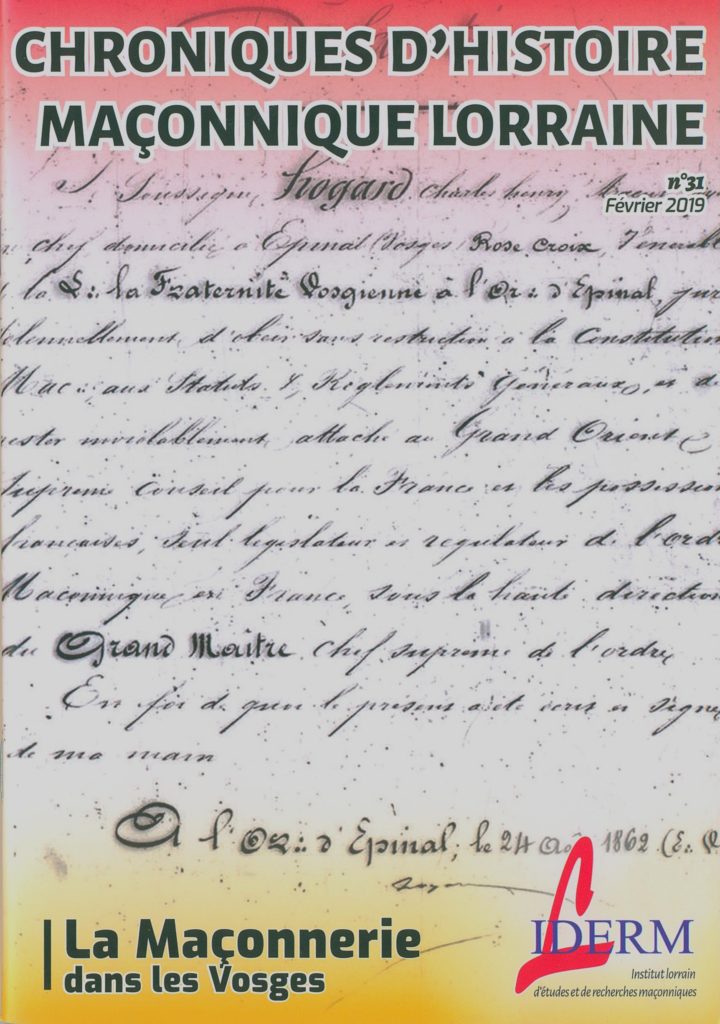 CHRONIQUES D'HISTOIRE
MAÇONNIQUE LORRAINE
n°31
Février 2019
Soussigné, hogard charles henry,
chef domicilié à Epinal (Vosges) Rose Croix, Vénérable
la L∴ la Fraternité Vosgienne à l'Or∴ d'Epinal, jure
solennellement, d'obéir sans restriction à la Constitution
Mac∴ aux Statuts & Réglements Généraux, et de
rester inviolablement attaché au Grand Orient
Suprême Conseil pour la France et les possessions
françaises, seul législateur et régulateur de l'ordre
Maçonnique en France, sous la haute direction
du Grand Maître chef suprême de l'ordre,
En foi de quoi le présent acte écrit et signé
de ma main
A l'Or∴ d'Epinal, le 24 Août 1862 (E∴ V
La Maçonnerie
dans les Vosges
LIDERM
Institut lorrain
d'études et de recherches maçonniques